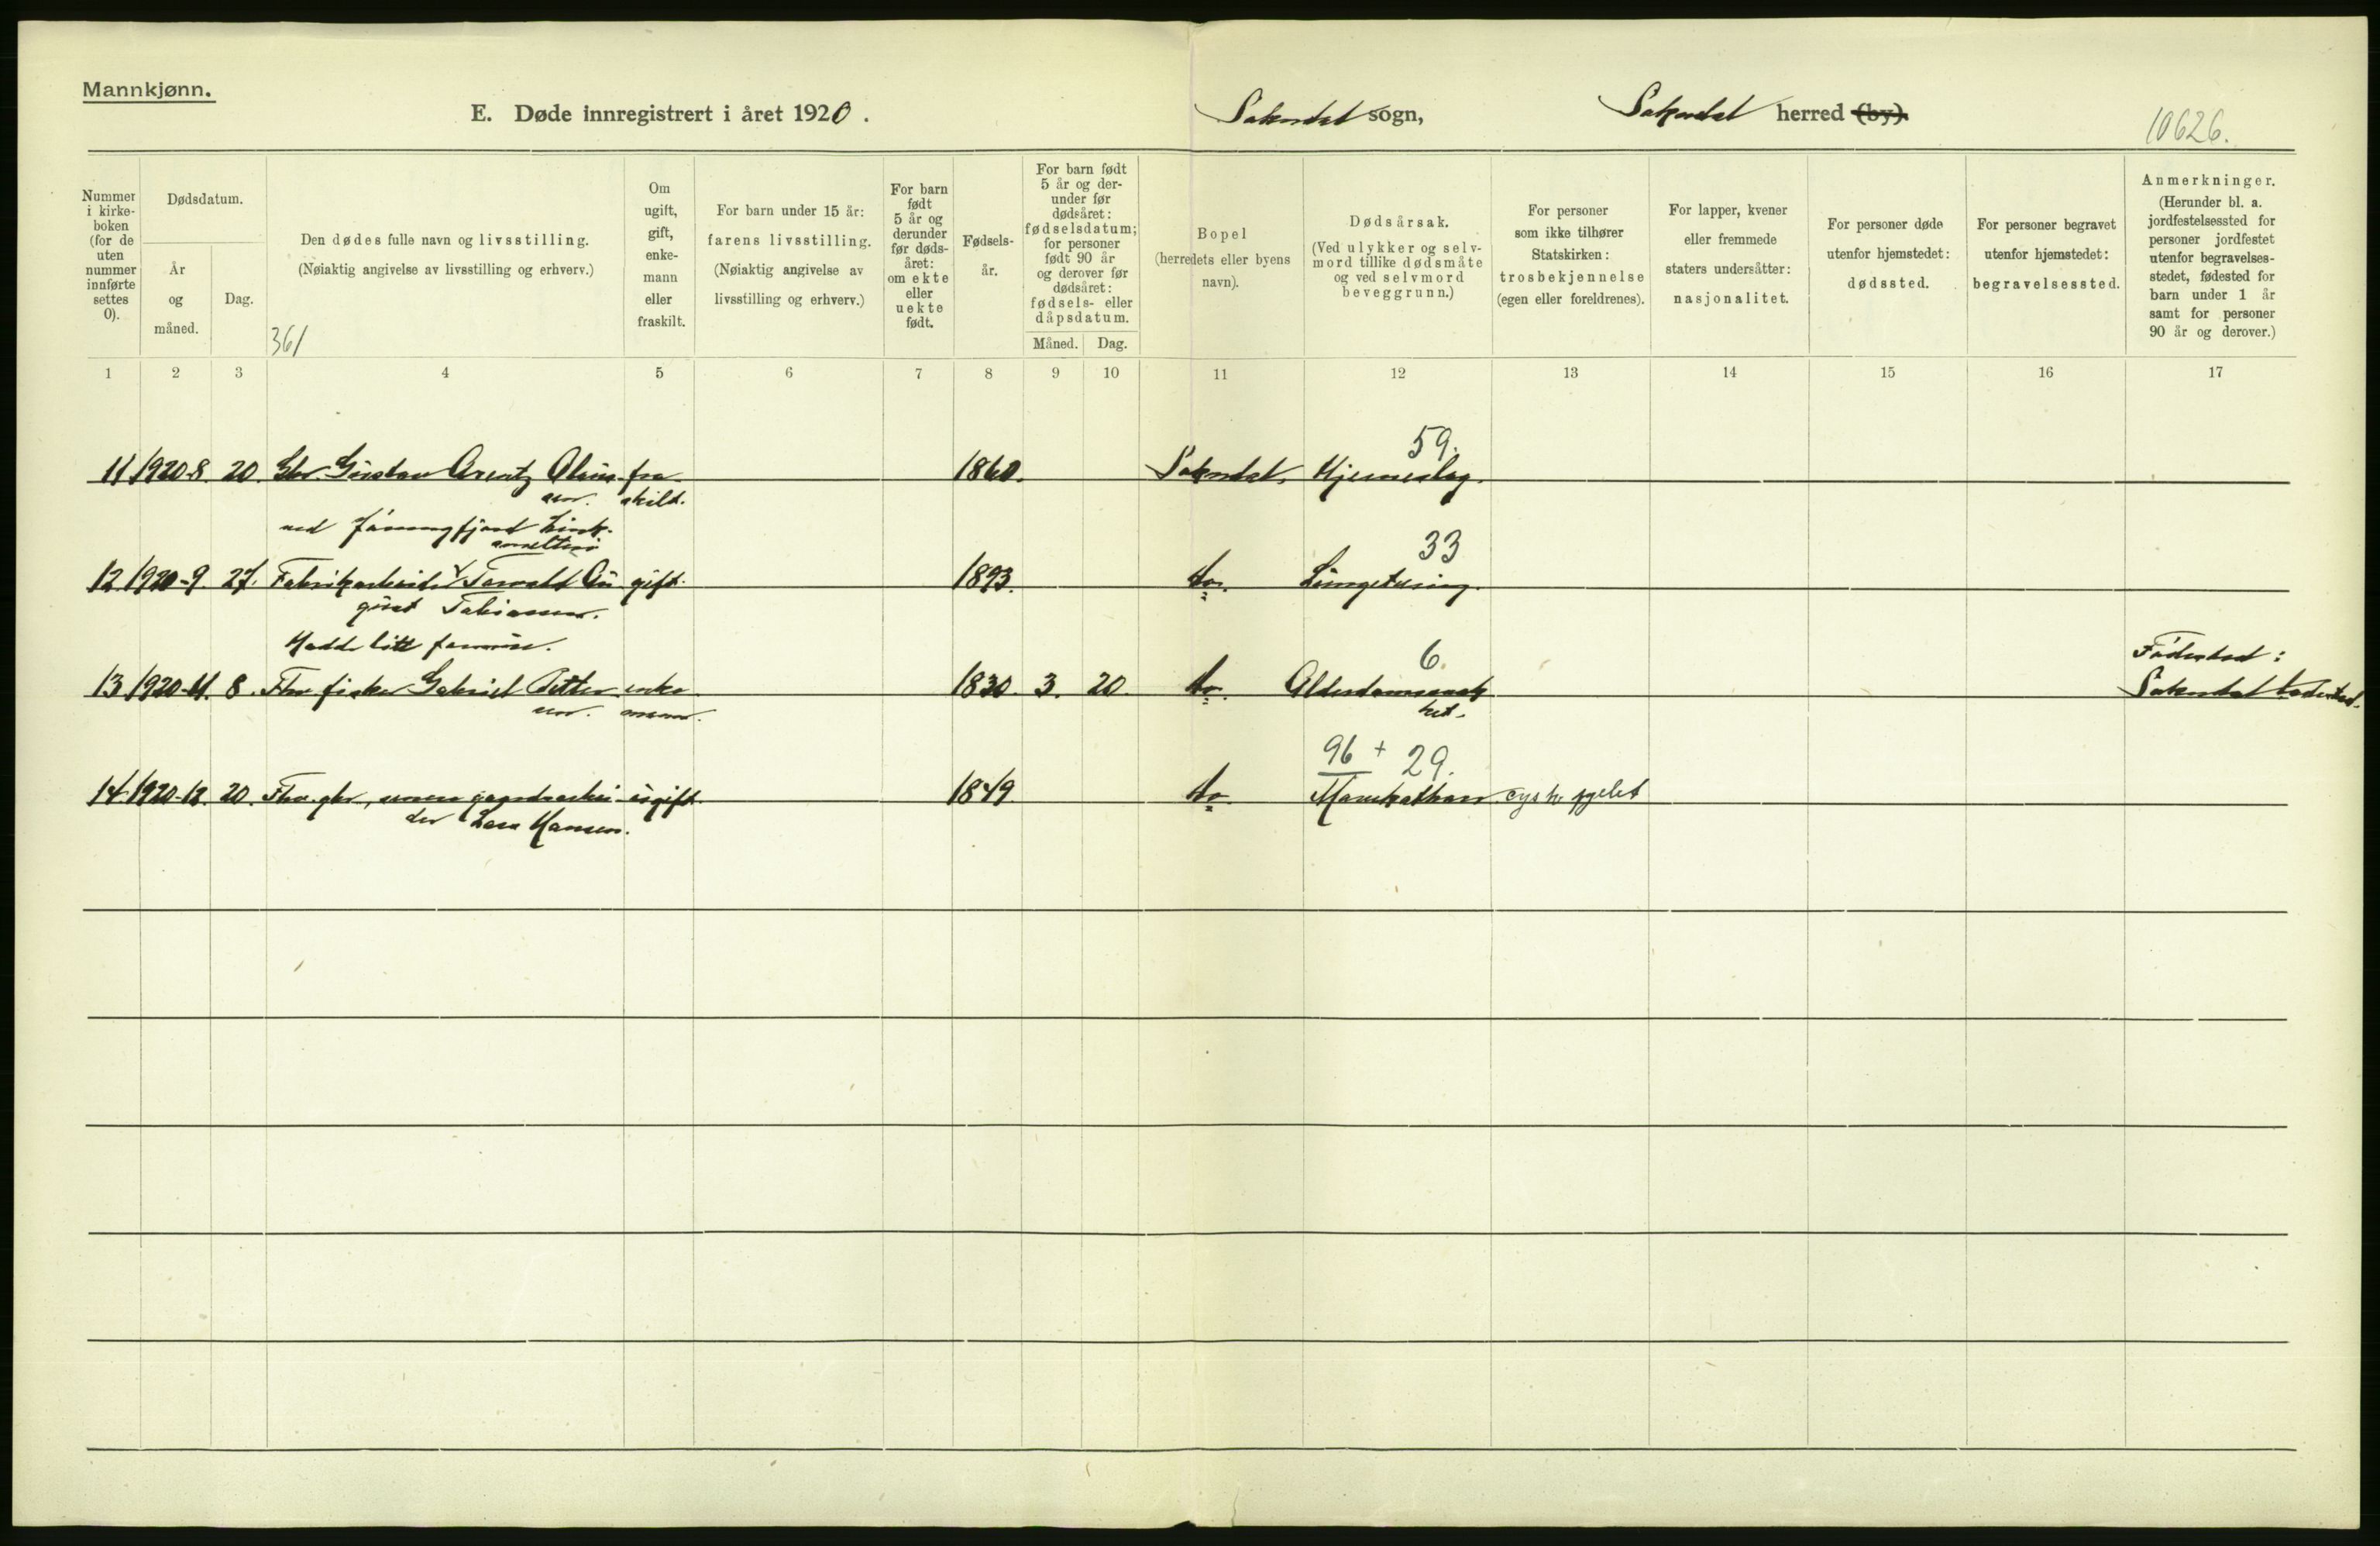 Mannkjønn.
E. Døde innregistrert i året 1920.
Sokndal sogn,
Sokndal herred (by).
10626.
Nummer i kirkeboken (for de uten nummer innførte settes 0).
Dødsdatum.
År og måned.
Dag.
Den dødes fulle navn og livsstilling.
(Nøiaktig angivelse av livsstilling og erhverv.)
361
Om ugift, gift, enkemann eller fraskilt.
For barn under 15 år:
farens livsstilling.
(Nøiaktig angivelse av livsstilling og erhverv.)
For barn født 5 år og derunder før dødsåret: om ekte eller uekte født.
Fødselsår.
For barn født 5 år og derunder før dødsåret: fødselsdatum; for personer født 90 år og derover før dødsåret: fødsels- eller dåpsdatum.
Måned.
Dag.
Bopel
(herredets eller byens navn).
Dødsårsak.
(Ved ulykker og selvmord tillike dødsmåte og ved selvmord beveggrunn.)
For personer som ikke tilhører Statskirken:
trosbekjennelse
(egen eller foreldrenes).
For lapper, kvener eller fremmede staters undersåtter:
nasjonalitet.
For personer døde utenfor hjemstedet:
dødssted.
For personer begravet utenfor hjemstedet:
begravelsessted.
Anmerkninger.
(Herunder bl. a. jordfestelsessted for personer jordfestet utenfor begravelsesstedet, fødested for barn under 1 år samt for personer 90 år og derover.)
1 2 3 4 5 6 7 8 9 10 11 12 13 14 15 16 17
59.
11 1920-8. 20. Gbr. Gustav Arentz Olaus- fra- 1860. Sokndal. Hjerneslag.
sen. skilt.
ved Jøssingfjord Zink-
smelteri
33
12 1920-9. 27. Fabrikarbeider Torvald Au- gift. 1893. do. Lungetæring.
gust Tobiassen.
Hadde litt formue.
6.
Fødested:
13 1920-11. 8. Fhv. fisker Gabriel Petter- enke- 1830. 3. 20. do. Alderdomssvak-
Sokndal
sen. mann. het.
96 + 29.
14. 1920-12. 20. Fhv. gbr., senere gaardsarbei- ugift. 1849. do. Blærekatharr
der Lars Hansen.